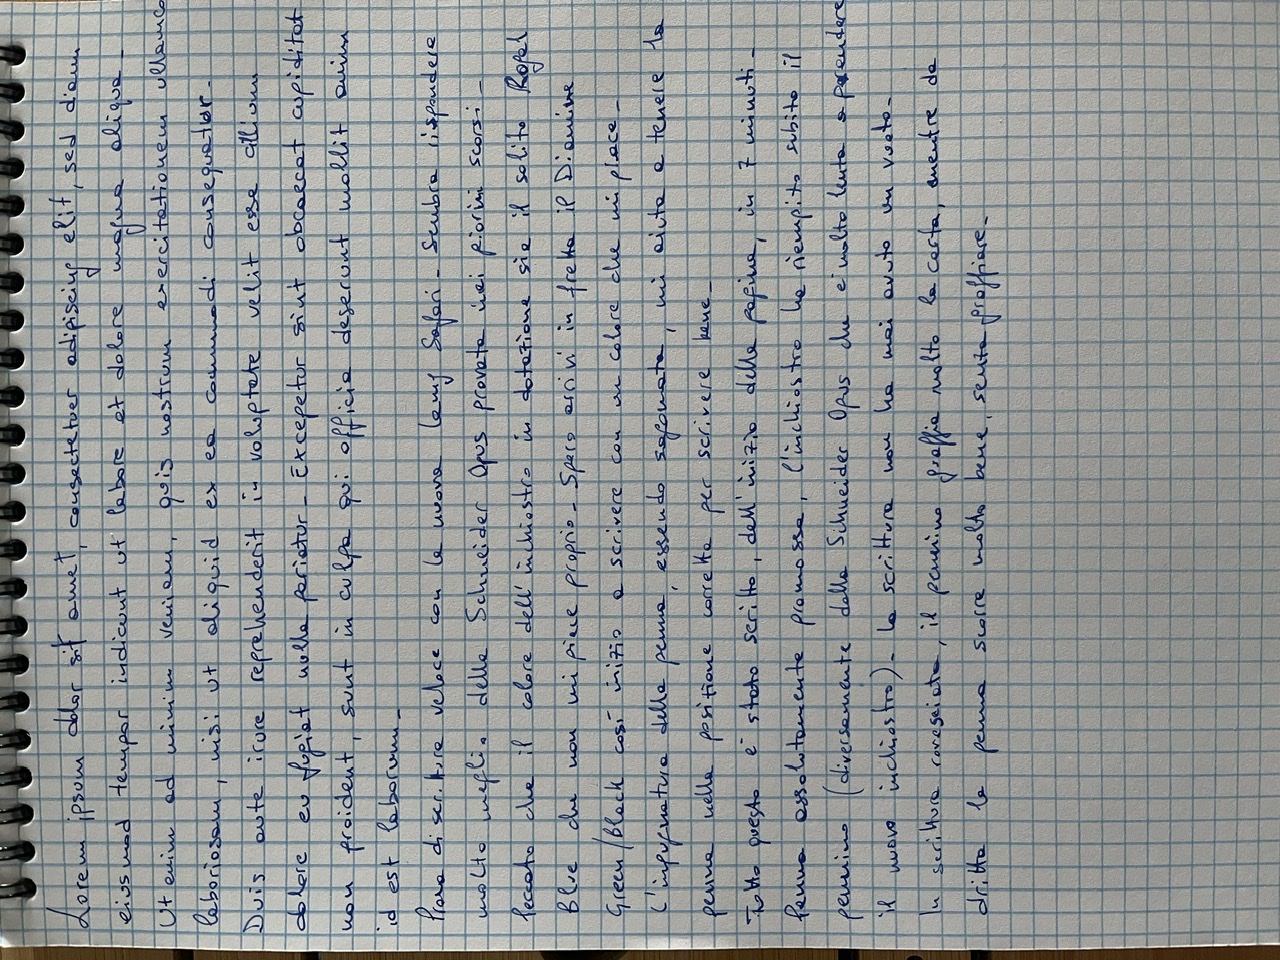 Lorem ipsum dolor sit amet, consectetuer adipiscing elit, sed diam
eiusmod tempor indicunt ut labore et dolore magna aliqua.
Ut enim ad minim veniam, quis nostrum exercitationem ullamco
laboriosam, nisi ut aliquid ex ea commodi consequatur.
Duis aute irure reprehenderit in voluptate velit esse cillum
dolore eu fugiat nulla pariatur. Excepetur sint obcaecat cupiditat
non proident, sunt in culpa qui officia deserunt mollit anim
id est laborum.
Prova di scrittura veloce con la nuova Lamy Safari. Sembra rispondere
molto meglio della Schneider Opus provata nei giorni scorsi.
Peccato che il colore dell'inchiostro in dotazione sia il solito Royal
Blue che non mi piace proprio. Spero arrivi in fretta il Diamine
Green/Black così inizio a scrivere con un colore che mi piace.
L'impugnatura della penna, essendo sagomata, mi aiuta a tenere la
penna nella posizione corretta per scrivere bene.
Tutto questo è stato scritto, dall'inizio della pagina, in 7 minuti.
Penna assolutamente promossa, l'inchiostro ha riempito subito il
pennino (diversamente dalla Schneider Opus che è molto lenta a prendere
il nuovo inchiostro). La scrittura non ha mai avuto un vuoto.
In scrittura rovesciata, il pennino graffia molto la carta, mentre da
dritta la penna scorre molto bene, senza graffiare.